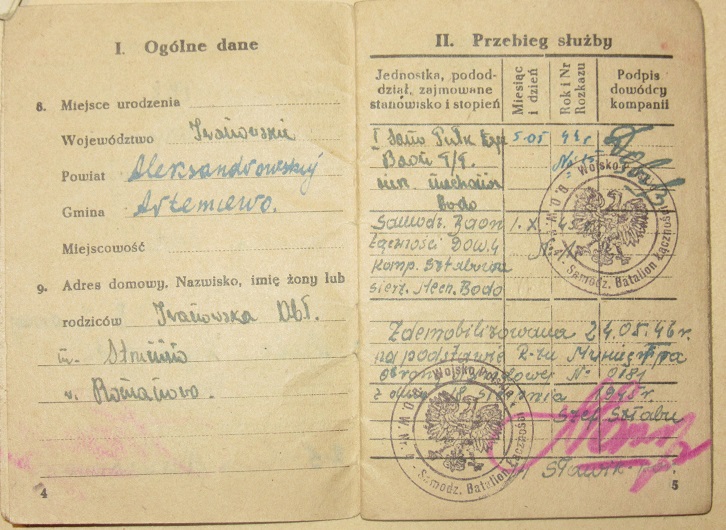 I. Ogólne dane
8. Miejsce urodzenia
Województwo Iwanowskie
Powiat Aleksandrowskij
Gmina Artemiewo.
Miejscowość
9. Adres domowy. Nazwisko, imię żony lub
rodziców Iwanowska Obł.
w. Romanowo.
4
II. Przebieg służby
Jednostka, podod-
dział, zajmowane
stanowisko i stopień
Miesiąc
i dzień
Rok i Nr
Rozkazu
Podpis
dowódcy
kompanii
Sam Pułk 5.05
Baon
mechanik
Bodo
Samodz. Baon 1.X 45
Łączności Dow. 4
Komp. Sztabowa
sierż. Mech. Bodo
Wojsko Polskie
Samodz. Batalion Łączności
Zdemobilizowana 24.05.46 r.
na podstawie R-zu Ministra
obrony Narodowej № 0181
z dnia 18 sierpnia 1945 r.
Szef Sztabu
Wojsko Polskie
Samodz. Batalion Łączności
5